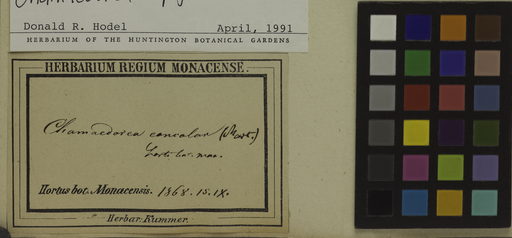 Donald R. Hodel April, 1991
HERBARIUM OF THE HUNTINGTON BOTANICAL GARDENS
HERBARIUM REGIUM MONACENSE.
Chamaedorea concolor (Mart.)
Hort. bot. mon.
Hortus bot. Monacensis. 1868. 15. IX.
Herbar. Kummer.